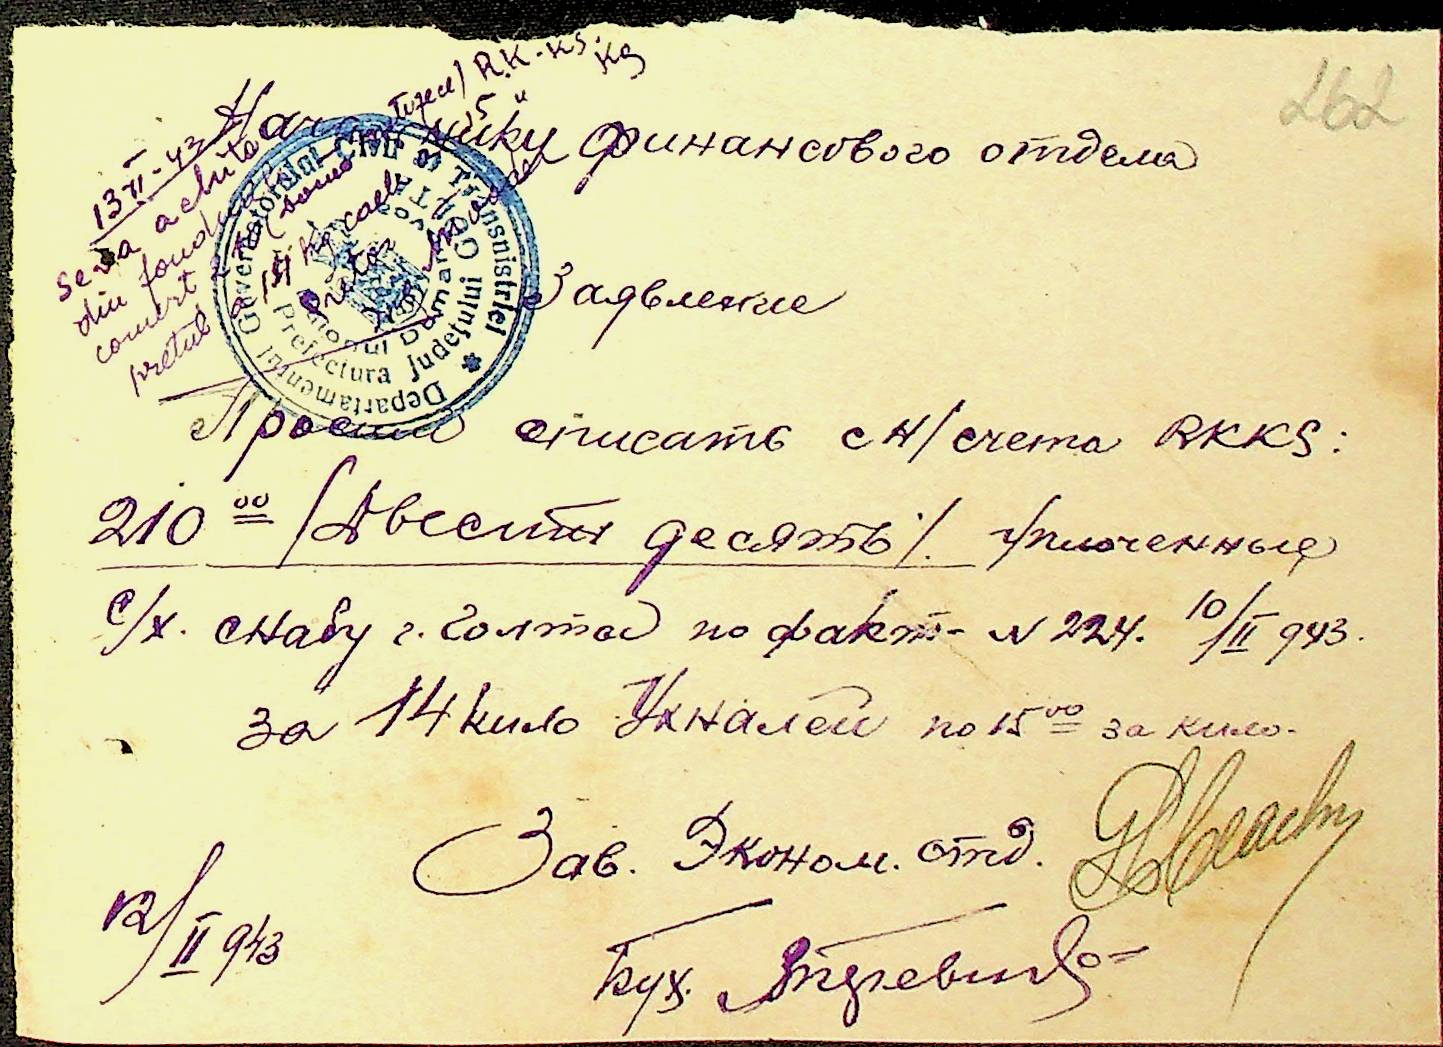 262
13 II-43
Se va achita
din fondul
comert
pretul
R.K.-KS.
Kg
Guvernatorul Civil al Transnistriei
Departamentul
Prefectura Județului
GOLTA
Начальнику финансового отдела
Заявление
Просим списать с н/счета RKKS:
210 00 /Двести десять/. уплоченные
с/х. снабу г. Голта по факт- N 224. 10/II 943.
за 14 кило Ухналей по 15 00 за кило.
Зав. Эконом. отд.
12/II 943
Бух.